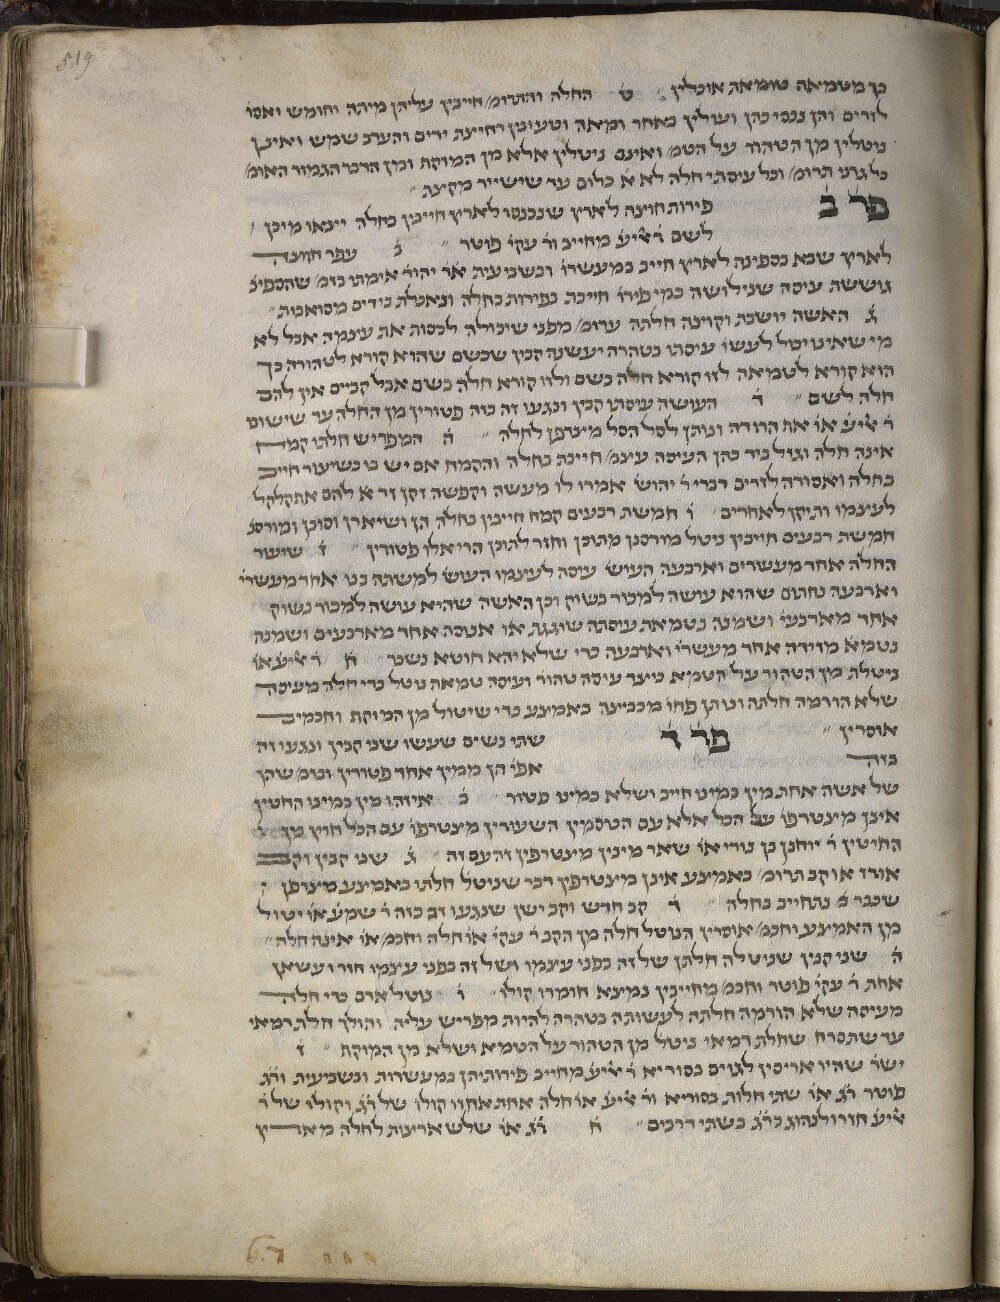 519
כן מטמאה טומאת אוכלין ״ ט החלה והתרומ׳ חייבין עליהן מיתה וחומש ואסו׳
לזרים והן נכסי כהן ועולין באחד ומאה וטעונין רחיצת ידים והערב שמש ואינן
ניטלין מן הטהור על הטמ׳ ואינם ניטלין אלא מן המוקף ומן הדבר הגמור האומ׳
כל גרני תרומ׳ וכל עיסתי חלה לא א׳ כלום עד שישייר מקצת ״
פר׳ ב פירות חוצה לארץ שנכנסו לארץ חייבין בחלה יצאו מיכן
לשם ר׳ אליע׳ מחייב ור׳ עקי׳ פוטר ״ ב עפר חוצה
לארץ שבא בספינה לארץ חייב במעשרו׳ ובשביעית א״ר יהוד׳ אימתי בזמ׳ שהספינ׳
גוששת עיסה שנילושה במי פירו׳ חייבת בחלה ונאכלת בידים מסואבות ״
ג האשה יושבת וקוצה חלתה ערומ׳ מפני שיכולה לכסות את עצמה אבל לא
מי שאינו יכול לעשו׳ עיסתו בטהרה יעשנה קבין שכשם שהוא קורא לטהורה כך
הוא קורא לטמאה לזו קורא חלה בשם ולזו קורא חלה בשם אבל קביים אין להם
חלה לשם ״ ד העושה עיסתו קבין ונגעו זה בזה פטורין מן החלה עד שישוכו
ר׳ אליע׳ או׳ אף הרודה ונותן לסל הסל מצרפן לחלה ״ ה המפריש חלתו קמח
אינה חלה וגזל ביד כהן העיסה עצמ׳ חייבת בחלה והקמח אם יש בו כשיעור חייב
בחלה ואסורה לזרים דברי ר׳ יהוש׳ אמרו לו מעשה וקפשה זקן זר א׳ להם אף קלקל
לעצמו ותיקן לאחרים ״ ו חמשת רבעים קמח חייבין בחלה הן ושיארן וסובן ומורסנ׳
חמשת רבעים חייבין ניטל מורסנן מתוכן וחזר לתוכן הרי אלו פטורין ״ ז שיעור
החלה אחד מעשרים וארבעה העוש׳ עיסה לעצמו העוש׳ למשתה בנו אחד מעשרי׳
וארבעה נחתום שהוא עושה למכור בשוק וכן האשה שהיא עושה למכור בשוק
אחד מארבעי׳ ושמנה נטמאת עיסתה שוגגת או אנוסה אחד מארבעים ושמנה
נטמא׳ מזידה אחד מעשרי׳ וארבעה כדי שלא יהא חוטא נשכר ״ ח ר׳ אליע׳ או׳
ניטלת מן הטהור על הטמא כיצד עיסה טהור׳ ועיסה טמאה נוטל כדי חלה מעיסה
שלא הורמה חלתה ונותן פחו׳ מכביצה באמצע כדי שיטול מן המוקף וחכמי׳
אוסרין ״ פר׳ ד שתי נשים שעשו שני קבין ונגעו זה
בזה אפי׳ הן ממין אחד פטורין ובזמ׳ שהן
של אשה אחת מין במינו חייב ושלא במינו פטור ״ ב איזהו מין במינו החטין
אינן מצטרפו׳ עם הכל אלא עם הכוסמין השעורין מצטרפו׳ עם הכל חוץ מן
החיטין ר׳ יוחנן בן נורי או׳ שאר מינין מצטרפין זה עם זה ״ ג שני קבין וקב
אורז או קב תרומ׳ באמצע אינן מצטרפין דבר שניטל חלתו באמצע מצרפן
שכבר נתחייב בחלה ״ ד קב חדש וקב ישן שנגעו זה בזה ר׳ שמע׳ או׳ יטול
מן האמצע וחכמ׳ אוסרין הנוטל חלה מן הקב ר׳ עקי׳ או׳ חלה וחכמ׳ או׳ אינה חלה ״
ה שני קבין שניטלה חלתן של זה בפני עצמו ושל זה בפני עצמו חזר ועשאן
אחת ר׳ עקי׳ פוטר וחכמ׳ מחייבין נמצא חומרו קולו ״ ו נוטל אדם כדי חלה
מעיסה שלא הורמה חלתה לעשותה בטהרה להיות מפריש עליה והולך חלת דמאי
עד שתסרח שחלת דמאי ניטל׳ מן הטהור על הטמא ושלא מן המוקף ״ ז
ישר׳ שהיו אריסין לגוים בסוריא ר׳ אליע׳ מחייב פירותיהן במעשרות ובשביעית ור״ג
פוטר ר״ג או׳ שתי חלות בסוריא ור׳ אליע׳ או׳ חלה אחת אחזו קולו של ר״ג וקולו של ר׳
אליע׳ חזרו לנהוג כר״ג בשתי דרכים ״ ח ר״ג או׳ שלש ארצות לחלה מארץ